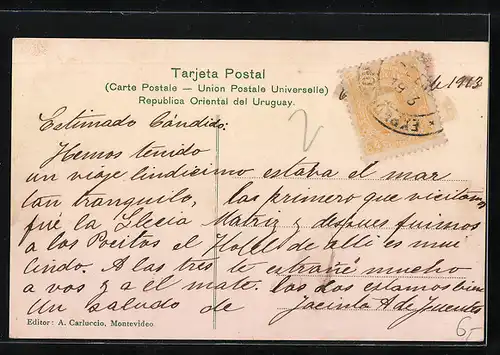 Tarjeta Postal
(Carte Postale — Union Postale Universelle)
Republica Oriental del Uruguay.
de 1913
Estimado Cándido:
Hemos tenido
un viaje lindicimo estaba el mar
tan tranquilo, las primero que vicitamos
fué la Iglecia Matriz y despues fuimos
a los Pocitos el Hotel de alli es mui
lindo. A las tres te extrañé mucho
a vos y a el mate. las dos estamos bien
Un saludo de Jacinta A de Fuentes
Editor: A. Carluccio, Montevideo
6,-